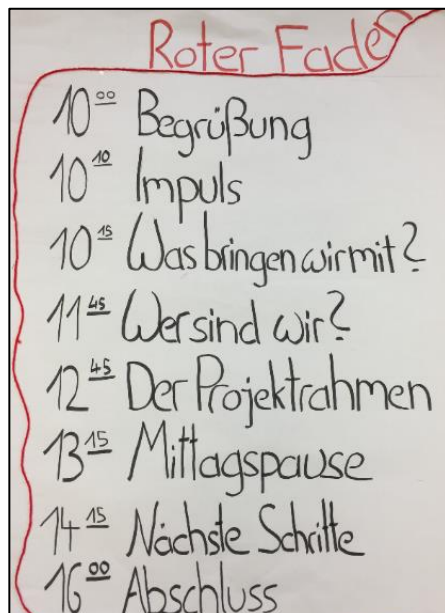 Roter Faden
10:00 Begrüßung
10:10 Impuls
10:15 Was bringen wir mit?
11:45 Wer sind wir?
12:45 Der Projektrahmen
13:15 Mittagspause
14:15 Nächste Schritte
16:00 Abschluss